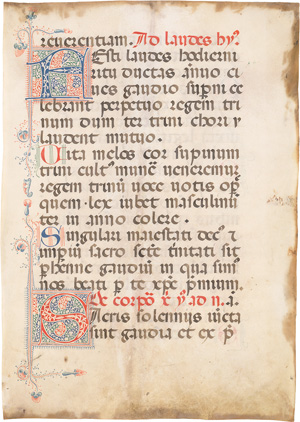 reverentiam. Ad laudes hy⁹.
Festi laudes hodierni
ritu ductas anno ci
ves gaudio supni ce
lebrant perpetuo regem tri
num dum ter trini chori y
laudent mutuo.
melos cor supinum
trini cult⁹ veneremur
regem trinū voce votis
quem lex iubet masculinū
ter in anno colere.
Singulari maiestati dec⁹ ⁊
impiū sacro scē tīnitati sit
phenne gaudiū in qua sim⁹
nos beati p te xpe pmium.
De corpe x̄ y ad a.
Sacris solenniis iūcta
sint gaudia et ex p